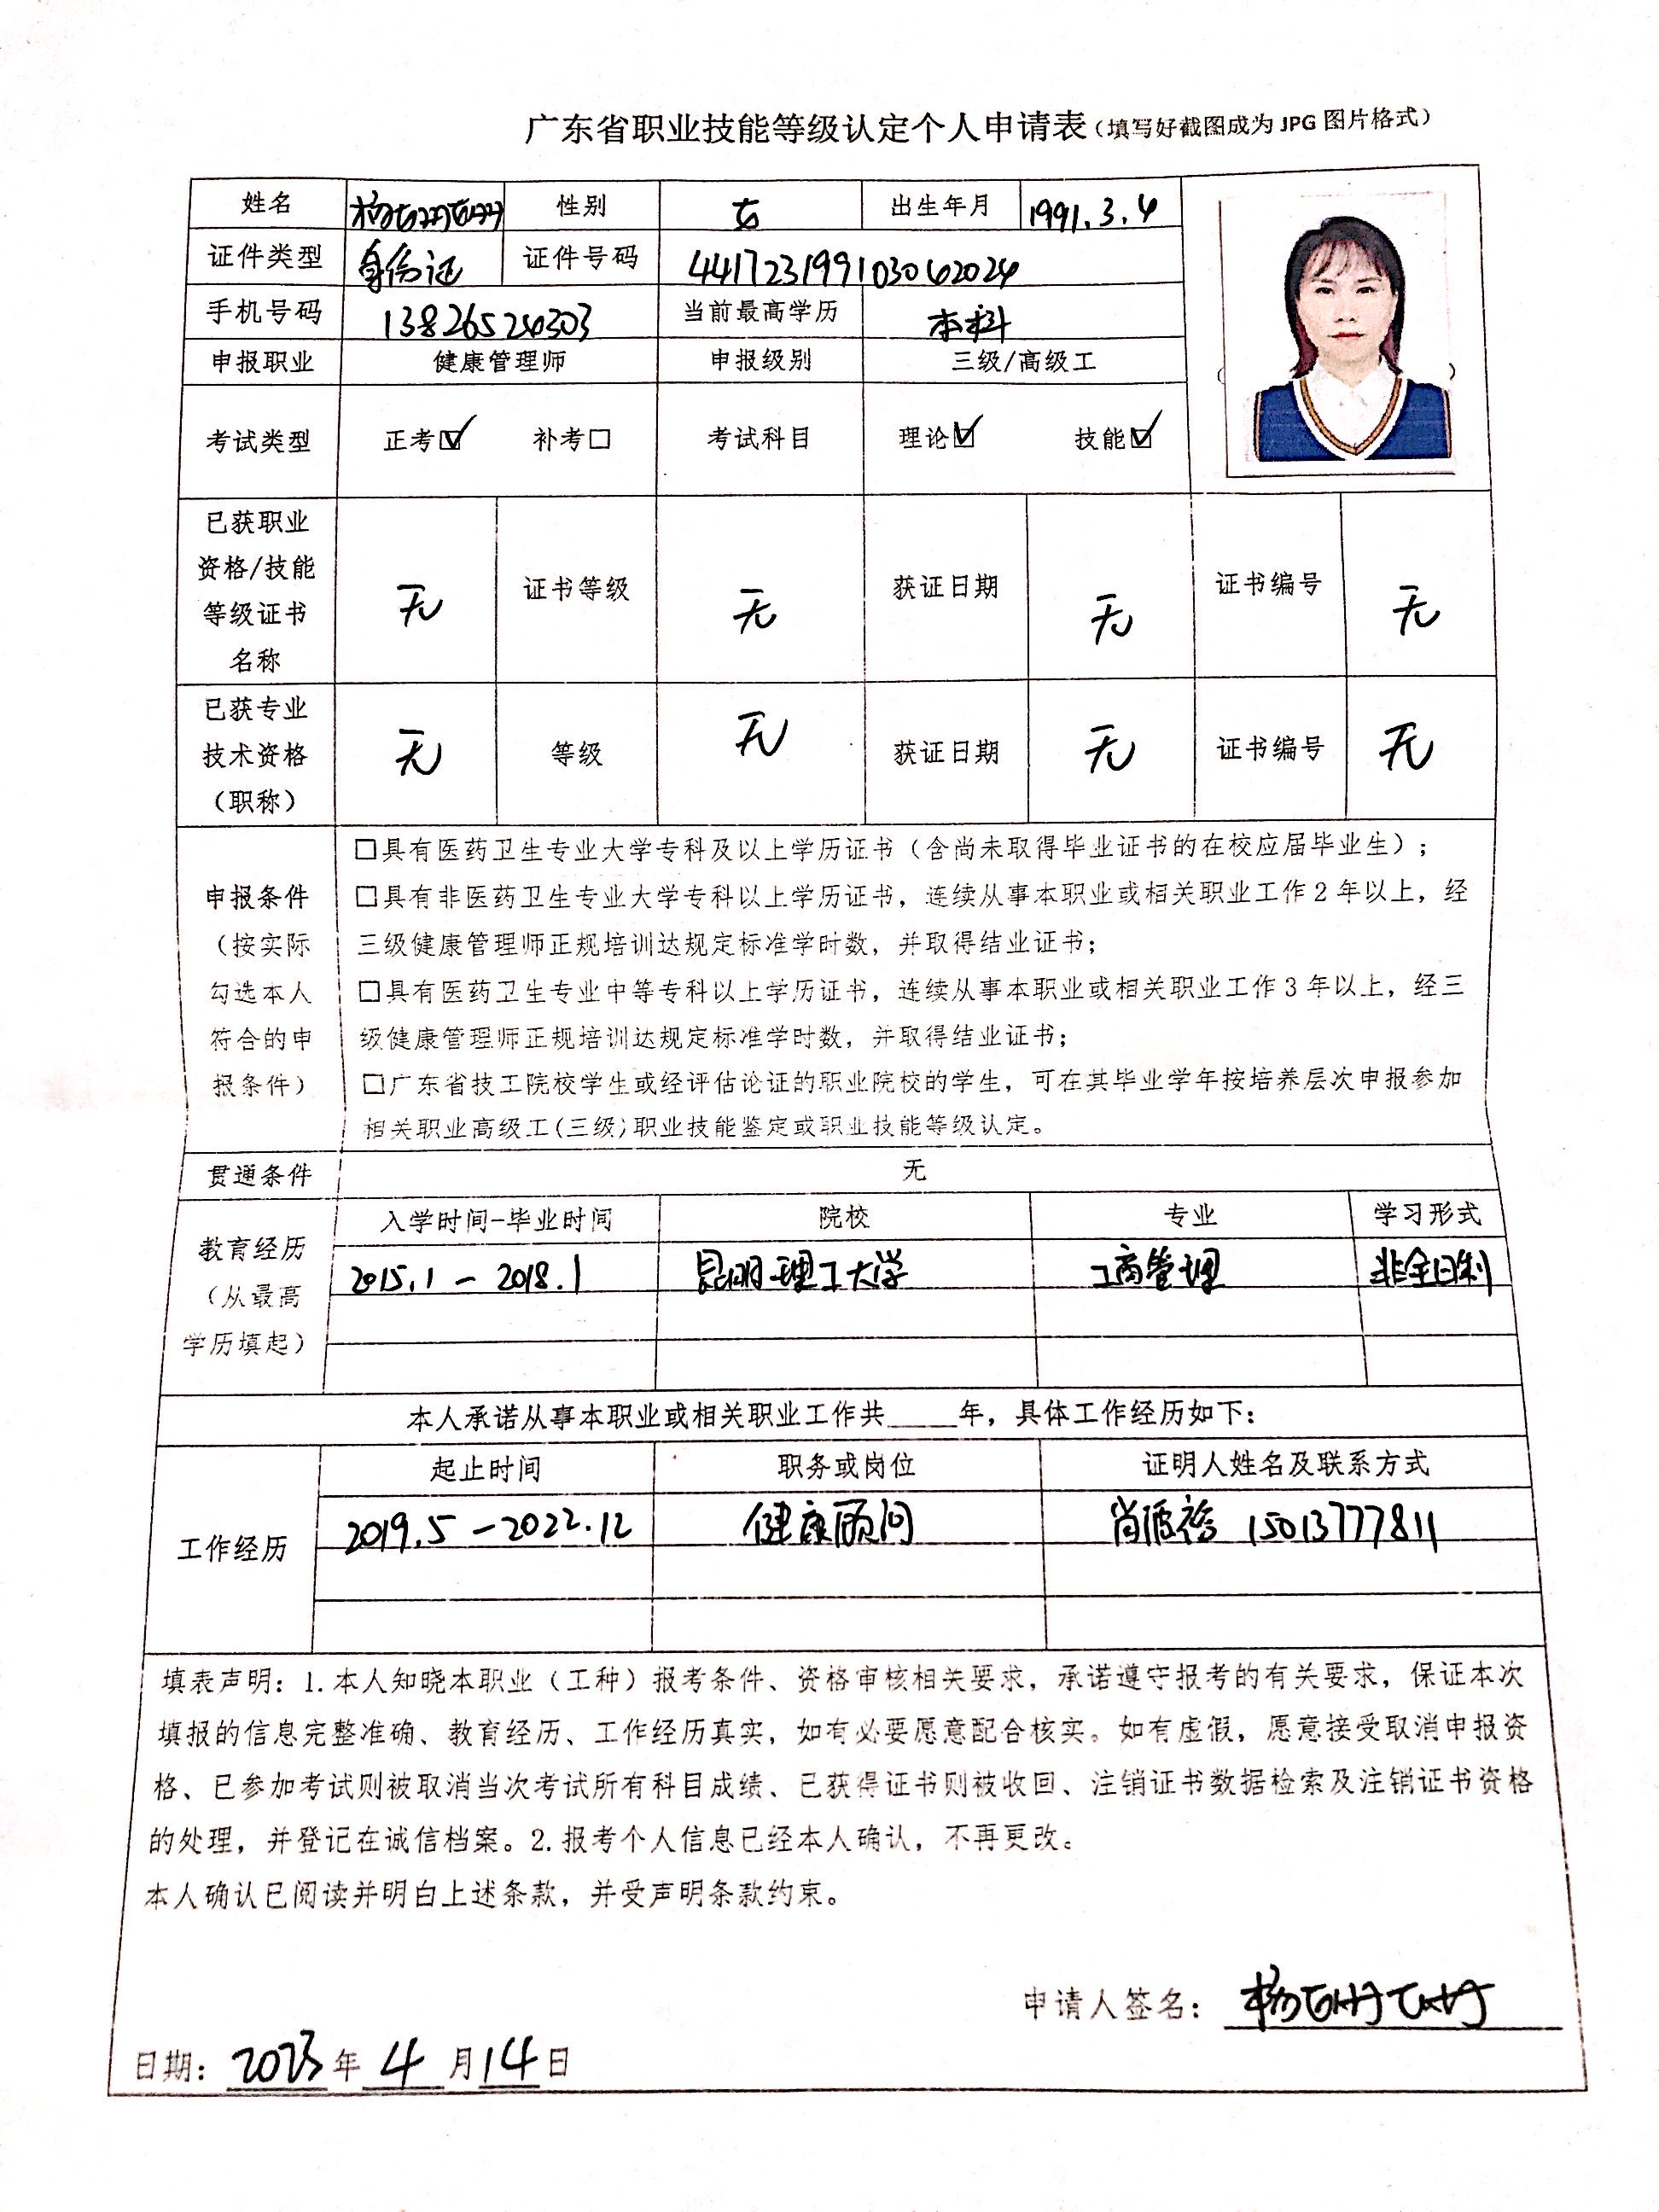 广东省职业技能等级认定个人申请表(填写好截图成为 JPG 图片格式)
姓名 杨姗姗 性别 女 出生年月 1991.3.4
证件类型 身份证 证件号码 441723199103042024
手机号码 13826524303 当前最高学历 本科
申报职业 健康管理师 申报级别 三级/高级工
考试类型 正考☑ 补考□ 考试科目 理论☑ 技能☑
已获职业
资格/技能
等级证书
名称
无 证书等级 无 获证日期 无 证书编号 无
已获专业
技术资格
(职称)
无 等级 无 获证日期 无 证书编号 无
申报条件
(按实际
勾选本人
符合的申
报条件)
□具有医药卫生专业大学专科及以上学历证书(含尚未取得毕业证书的在校应届毕业生);
□具有非医药卫生专业大学专科以上学历证书,连续从事本职业或相关职业工作2年以上,经
三级健康管理师正规培训达规定标准学时数,并取得结业证书;
□具有医药卫生专业中等专科以上学历证书,连续从事本职业或相关职业工作3年以上,经三
级健康管理师正规培训达规定标准学时数,并取得结业证书;
□广东省技工院校学生或经评估论证的职业院校的学生,可在其毕业学年按培养层次申报参加
相关职业高级工(三级)职业技能鉴定或职业技能等级认定。
贯通条件 无
教育经历
(从最高
学历填起)
入学时间-毕业时间 院校 专业 学习形式
2015.1-2018.1 昆明理工大学 工商管理 非全日制
本人承诺从事本职业或相关职业工作共____年,具体工作经历如下:
工作经历
起止时间 职务或岗位 证明人姓名及联系方式
2019.5-2022.12 健康顾问 肖 15013777811
填表声明:1.本人知晓本职业(工种)报考条件、资格审核相关要求,承诺遵守报考的有关要求,保证本次
填报的信息完整准确、教育经历、工作经历真实,如有必要愿意配合核实。如有虚假,愿意接受取消申报资
格、已参加考试则被取消当次考试所有科目成绩、已获得证书则被收回、注销证书数据检索及注销证书资格
的处理,并登记在诚信档案。2.报考个人信息已经本人确认,不再更改。
本人确认已阅读并明白上述条款,并受声明条款约束。
申请人签名:杨姗姗
日期:2023年4月14日